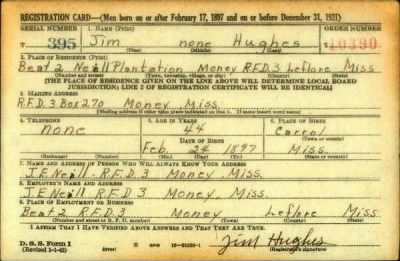 REGISTRATION CARD—(Men born on or after February 17, 1897 and on or before December 31, 1921)
SERIAL NUMBER 1. NAME (Print) ORDER NUMBER
T 395 Jim none Hughes 10390
(First) (Middle) (Last)
2. PLACE OF RESIDENCE (Print)
Beat 2 Neill Plantation Money R.F.D.3 Leflore Miss
(Number and street) (Town, township, village, or city) (County) (State)
[THE PLACE OF RESIDENCE GIVEN ON THE LINE ABOVE WILL DETERMINE LOCAL BOARD
JURISDICTION; LINE 2 OF REGISTRATION CERTIFICATE WILL BE IDENTICAL]
3. MAILING ADDRESS
R.F.D.3 Box 270 Money Miss.
[Mailing address if other than place indicated on line 2. If same insert word same]
4. TELEPHONE 5. AGE IN YEARS 6. PLACE OF BIRTH
none 44 Carrol
DATE OF BIRTH (Town or county)
Feb. 24 1897 Miss.
(Exchange) (Number) (Mo.) (Day) (Yr.) (State or country)
7. NAME AND ADDRESS OF PERSON WHO WILL ALWAYS KNOW YOUR ADDRESS
J.E Neill - R.F.D. 3 Money, Miss.
8. EMPLOYER'S NAME AND ADDRESS
J.E Neill R.F.D. 3 Money, Miss.
9. PLACE OF EMPLOYMENT OR BUSINESS
Beat 2 R.F.D. 3 Money Leflore Miss
(Number and street or R. F. D. number) (Town) (County) (State)
I AFFIRM THAT I HAVE VERIFIED ABOVE ANSWERS AND THAT THEY ARE TRUE.
D. S. S. Form 1
(Revised 1-1-42) (over) GPO Jim Hughes
(Registrant's signature)